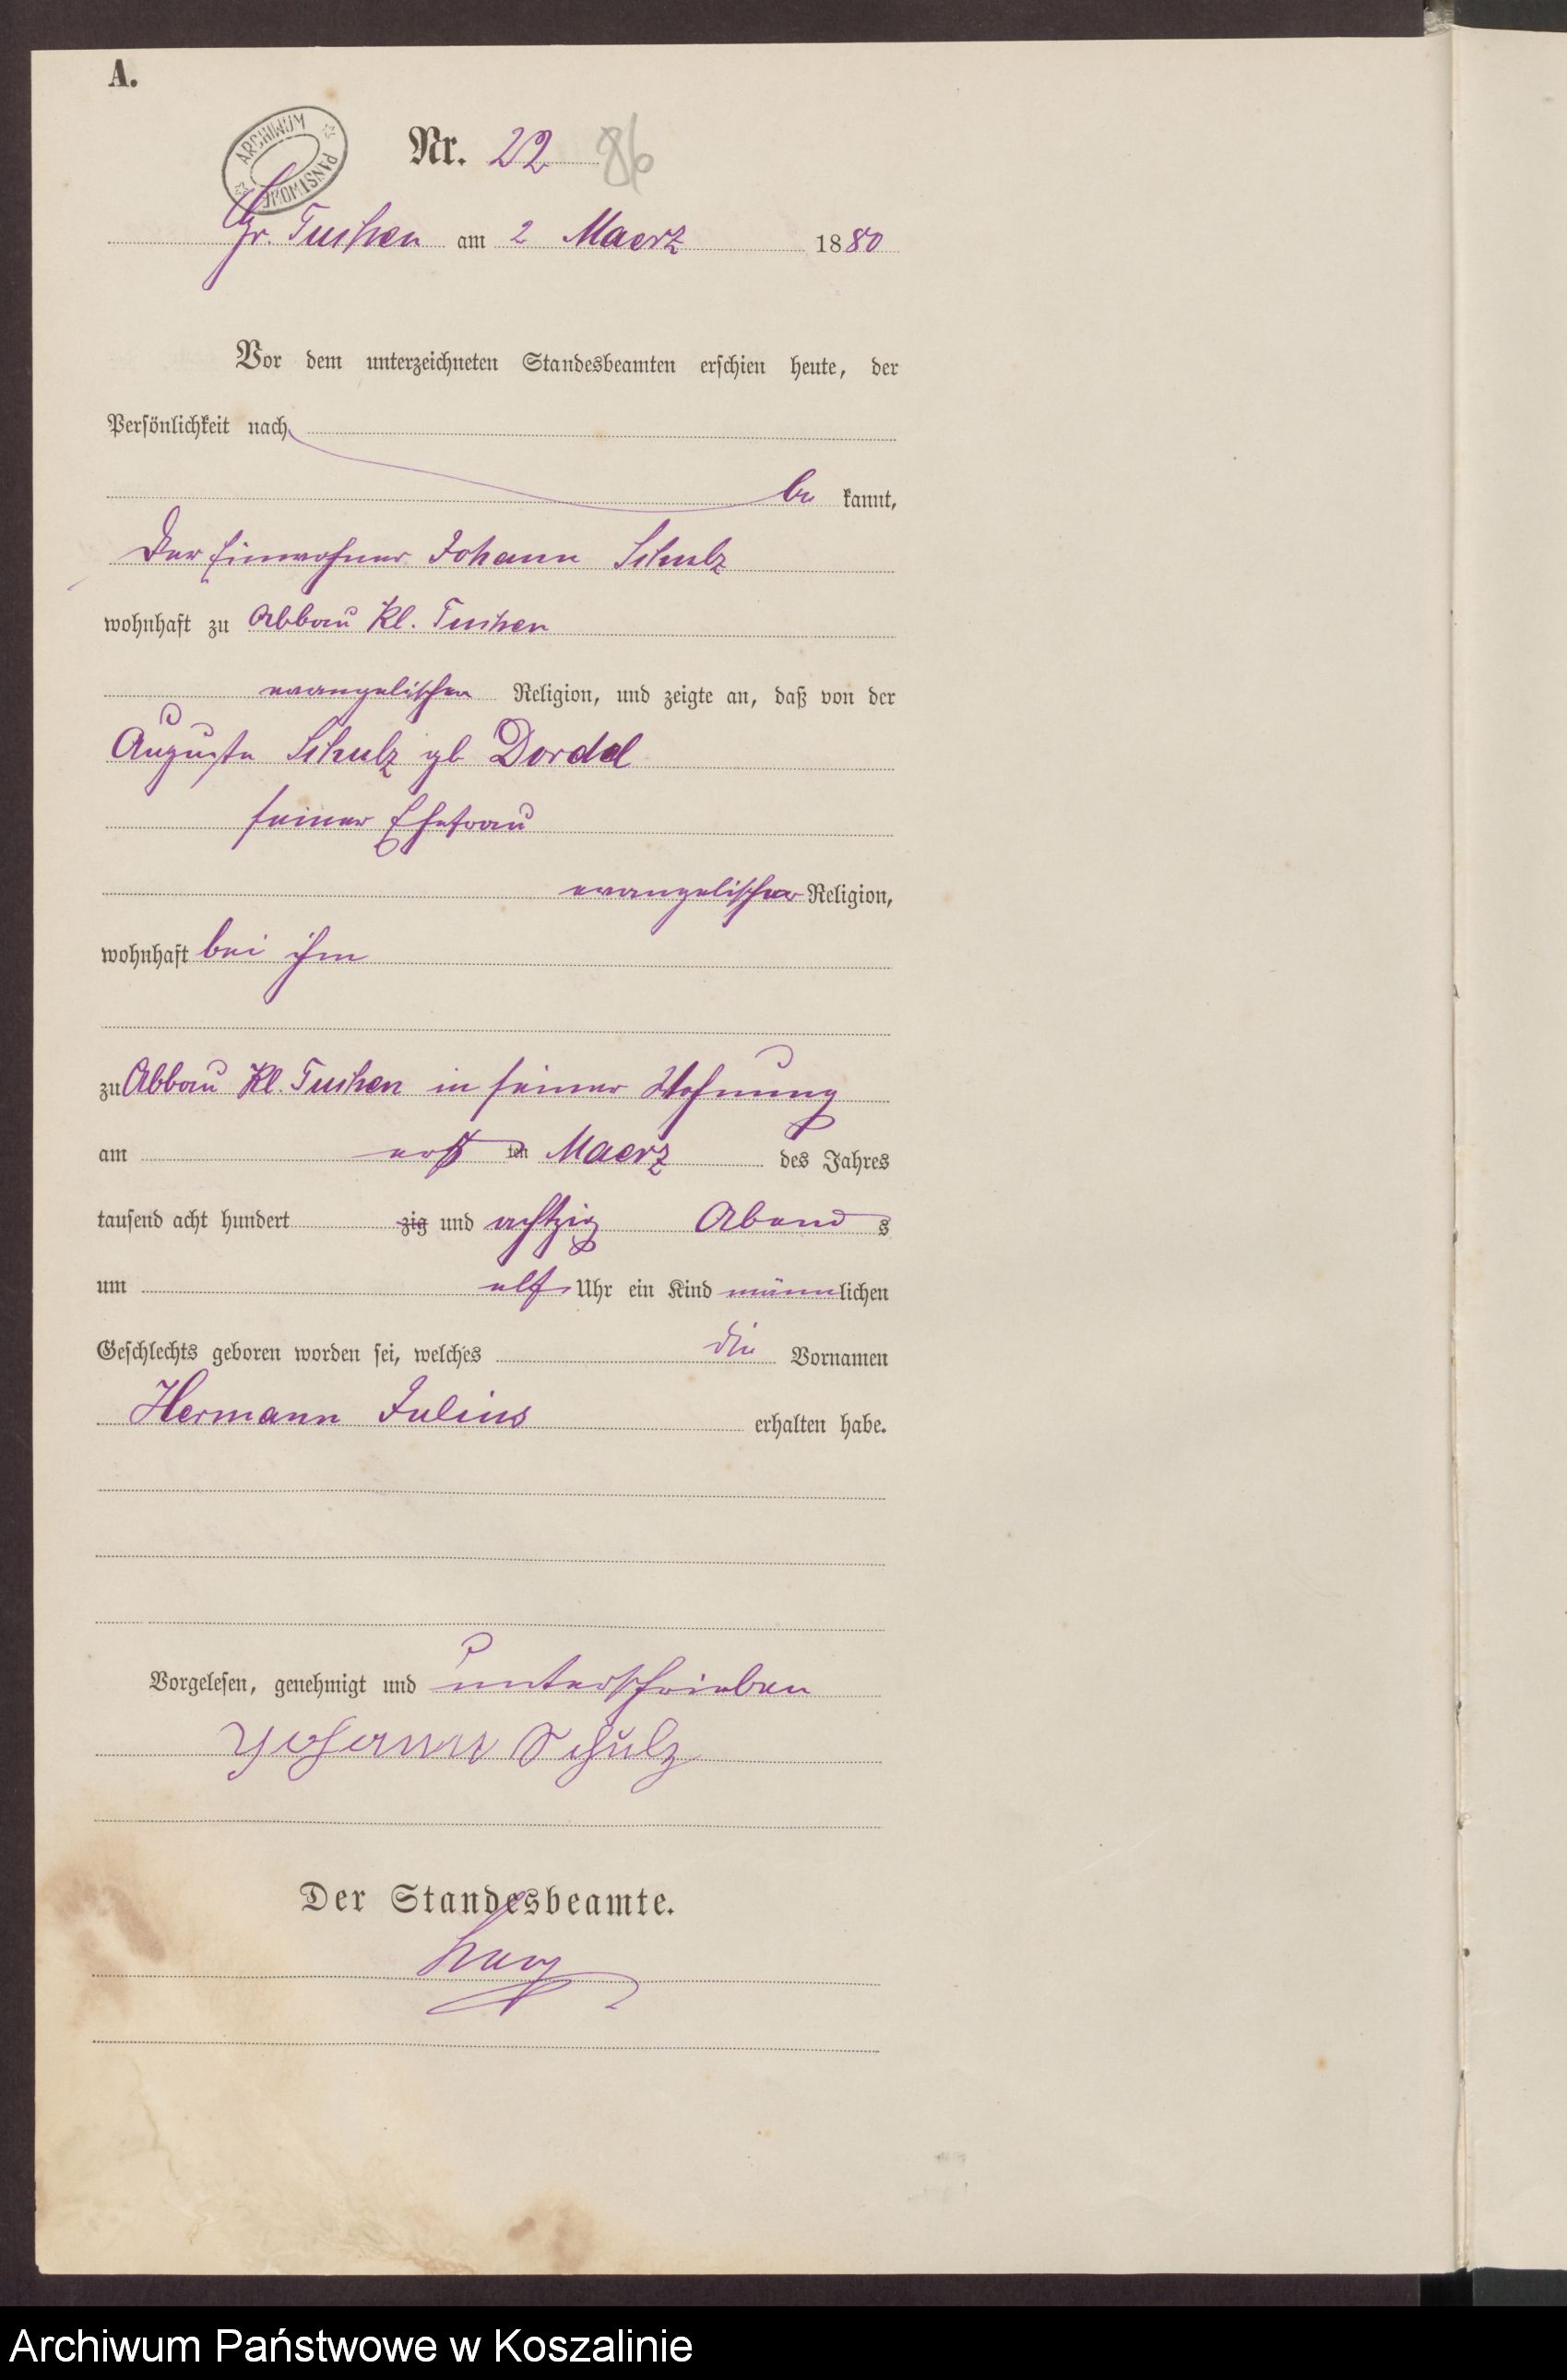 A.
ARCHIWUM PAŃSTWOWE
Nr. 22 86
Gr. Tuchen am 2 Maerz 1880
Vor dem unterzeichneten Standesbeamten erschien heute, der
Persönlichkeit nach
be kannt,
Der Einwohner Johann Schulz
wohnhaft zu Abbau Kl. Tuchen
evangelischer Religion, und zeigte an, daß von der
Auguste Schulz gb Dordel
seiner Ehefrau
evangelischer Religion,
wohnhaft bei ihm
zu Abbau Kl. Tuchen in seiner Wohnung
am ersten Maerz des Jahres
tausend acht hundert zig und achtzig Abends
um elf Uhr ein Kind männlichen
Geschlechts geboren worden sei, welches die Vornamen
Hermann Julius erhalten habe.
Vorgelesen, genehmigt und unterschrieben
Johann Schulz
Der Standesbeamte.
Archiwum Państwowe w Koszalinie